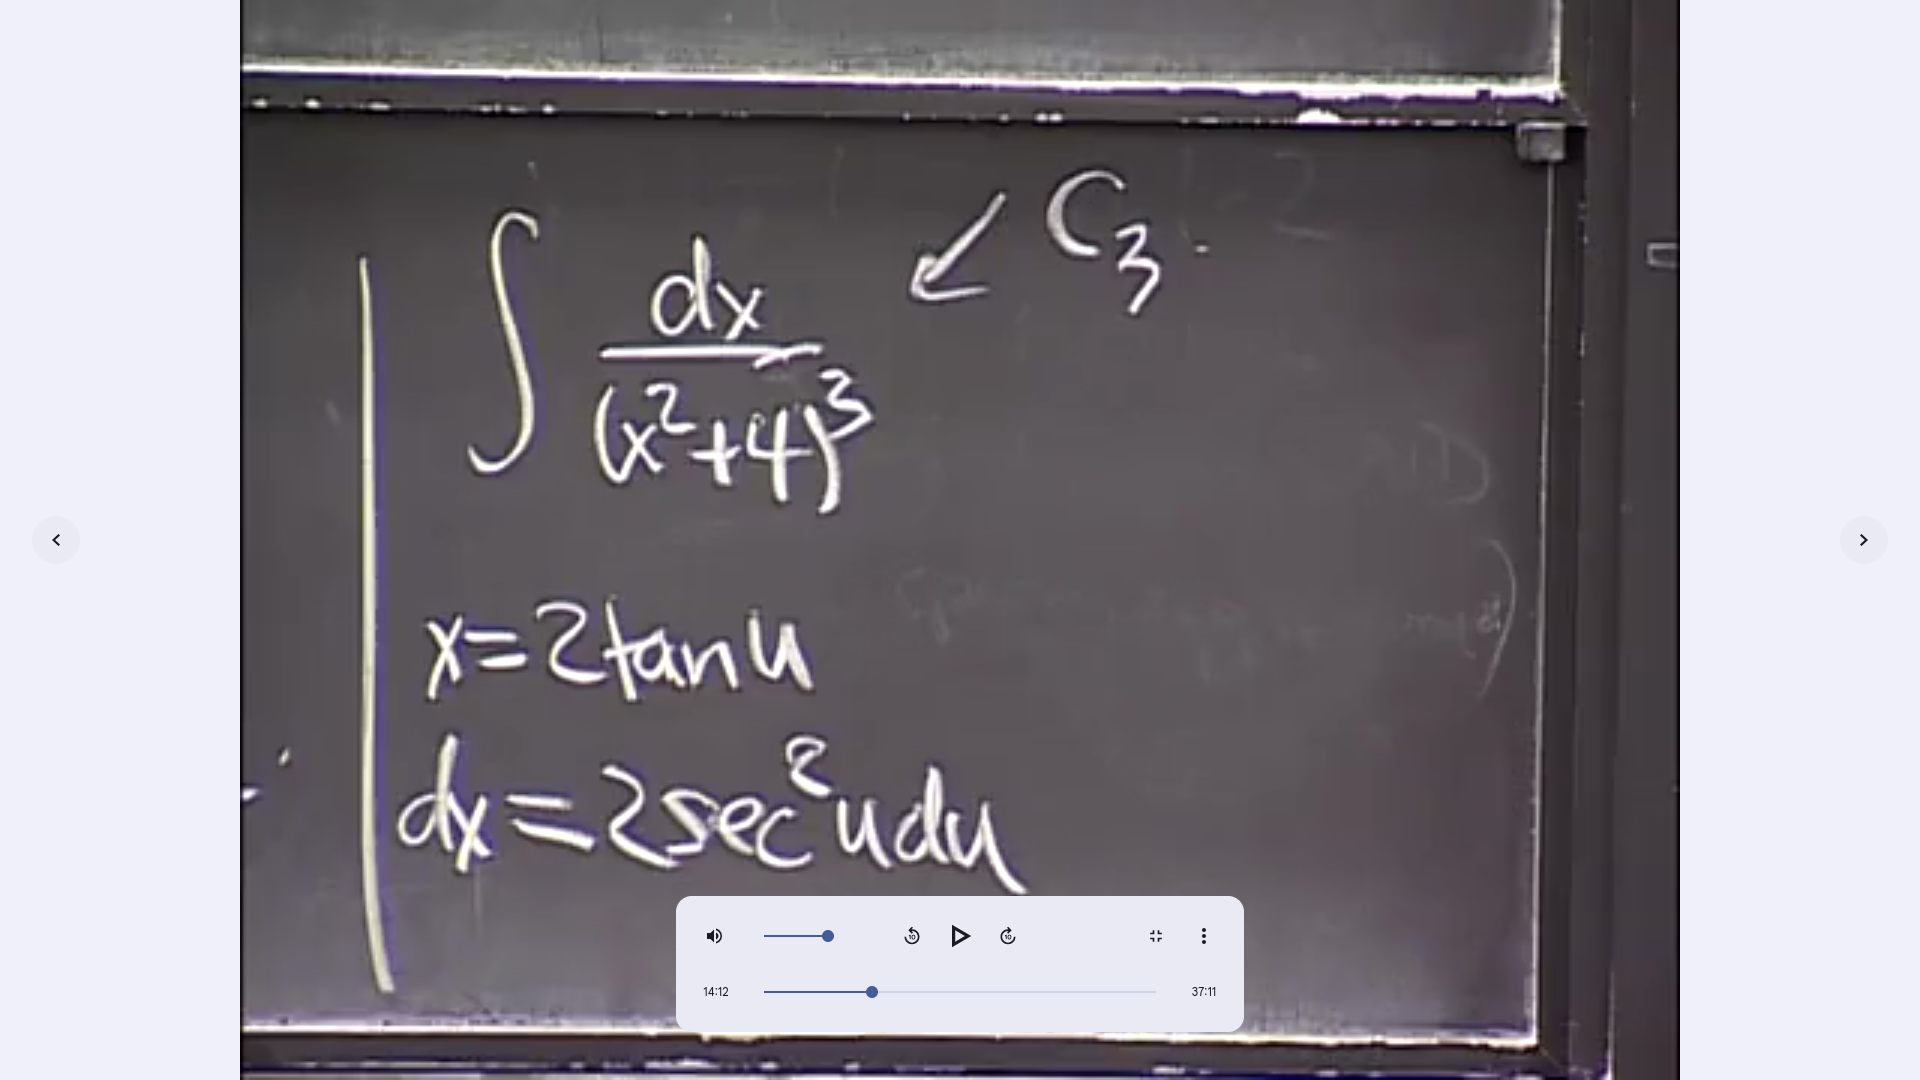 ∫ dx/(x²+4)³ ↙ C₃.
x=2tan u
dx=2sec²u du
14:12 37:11